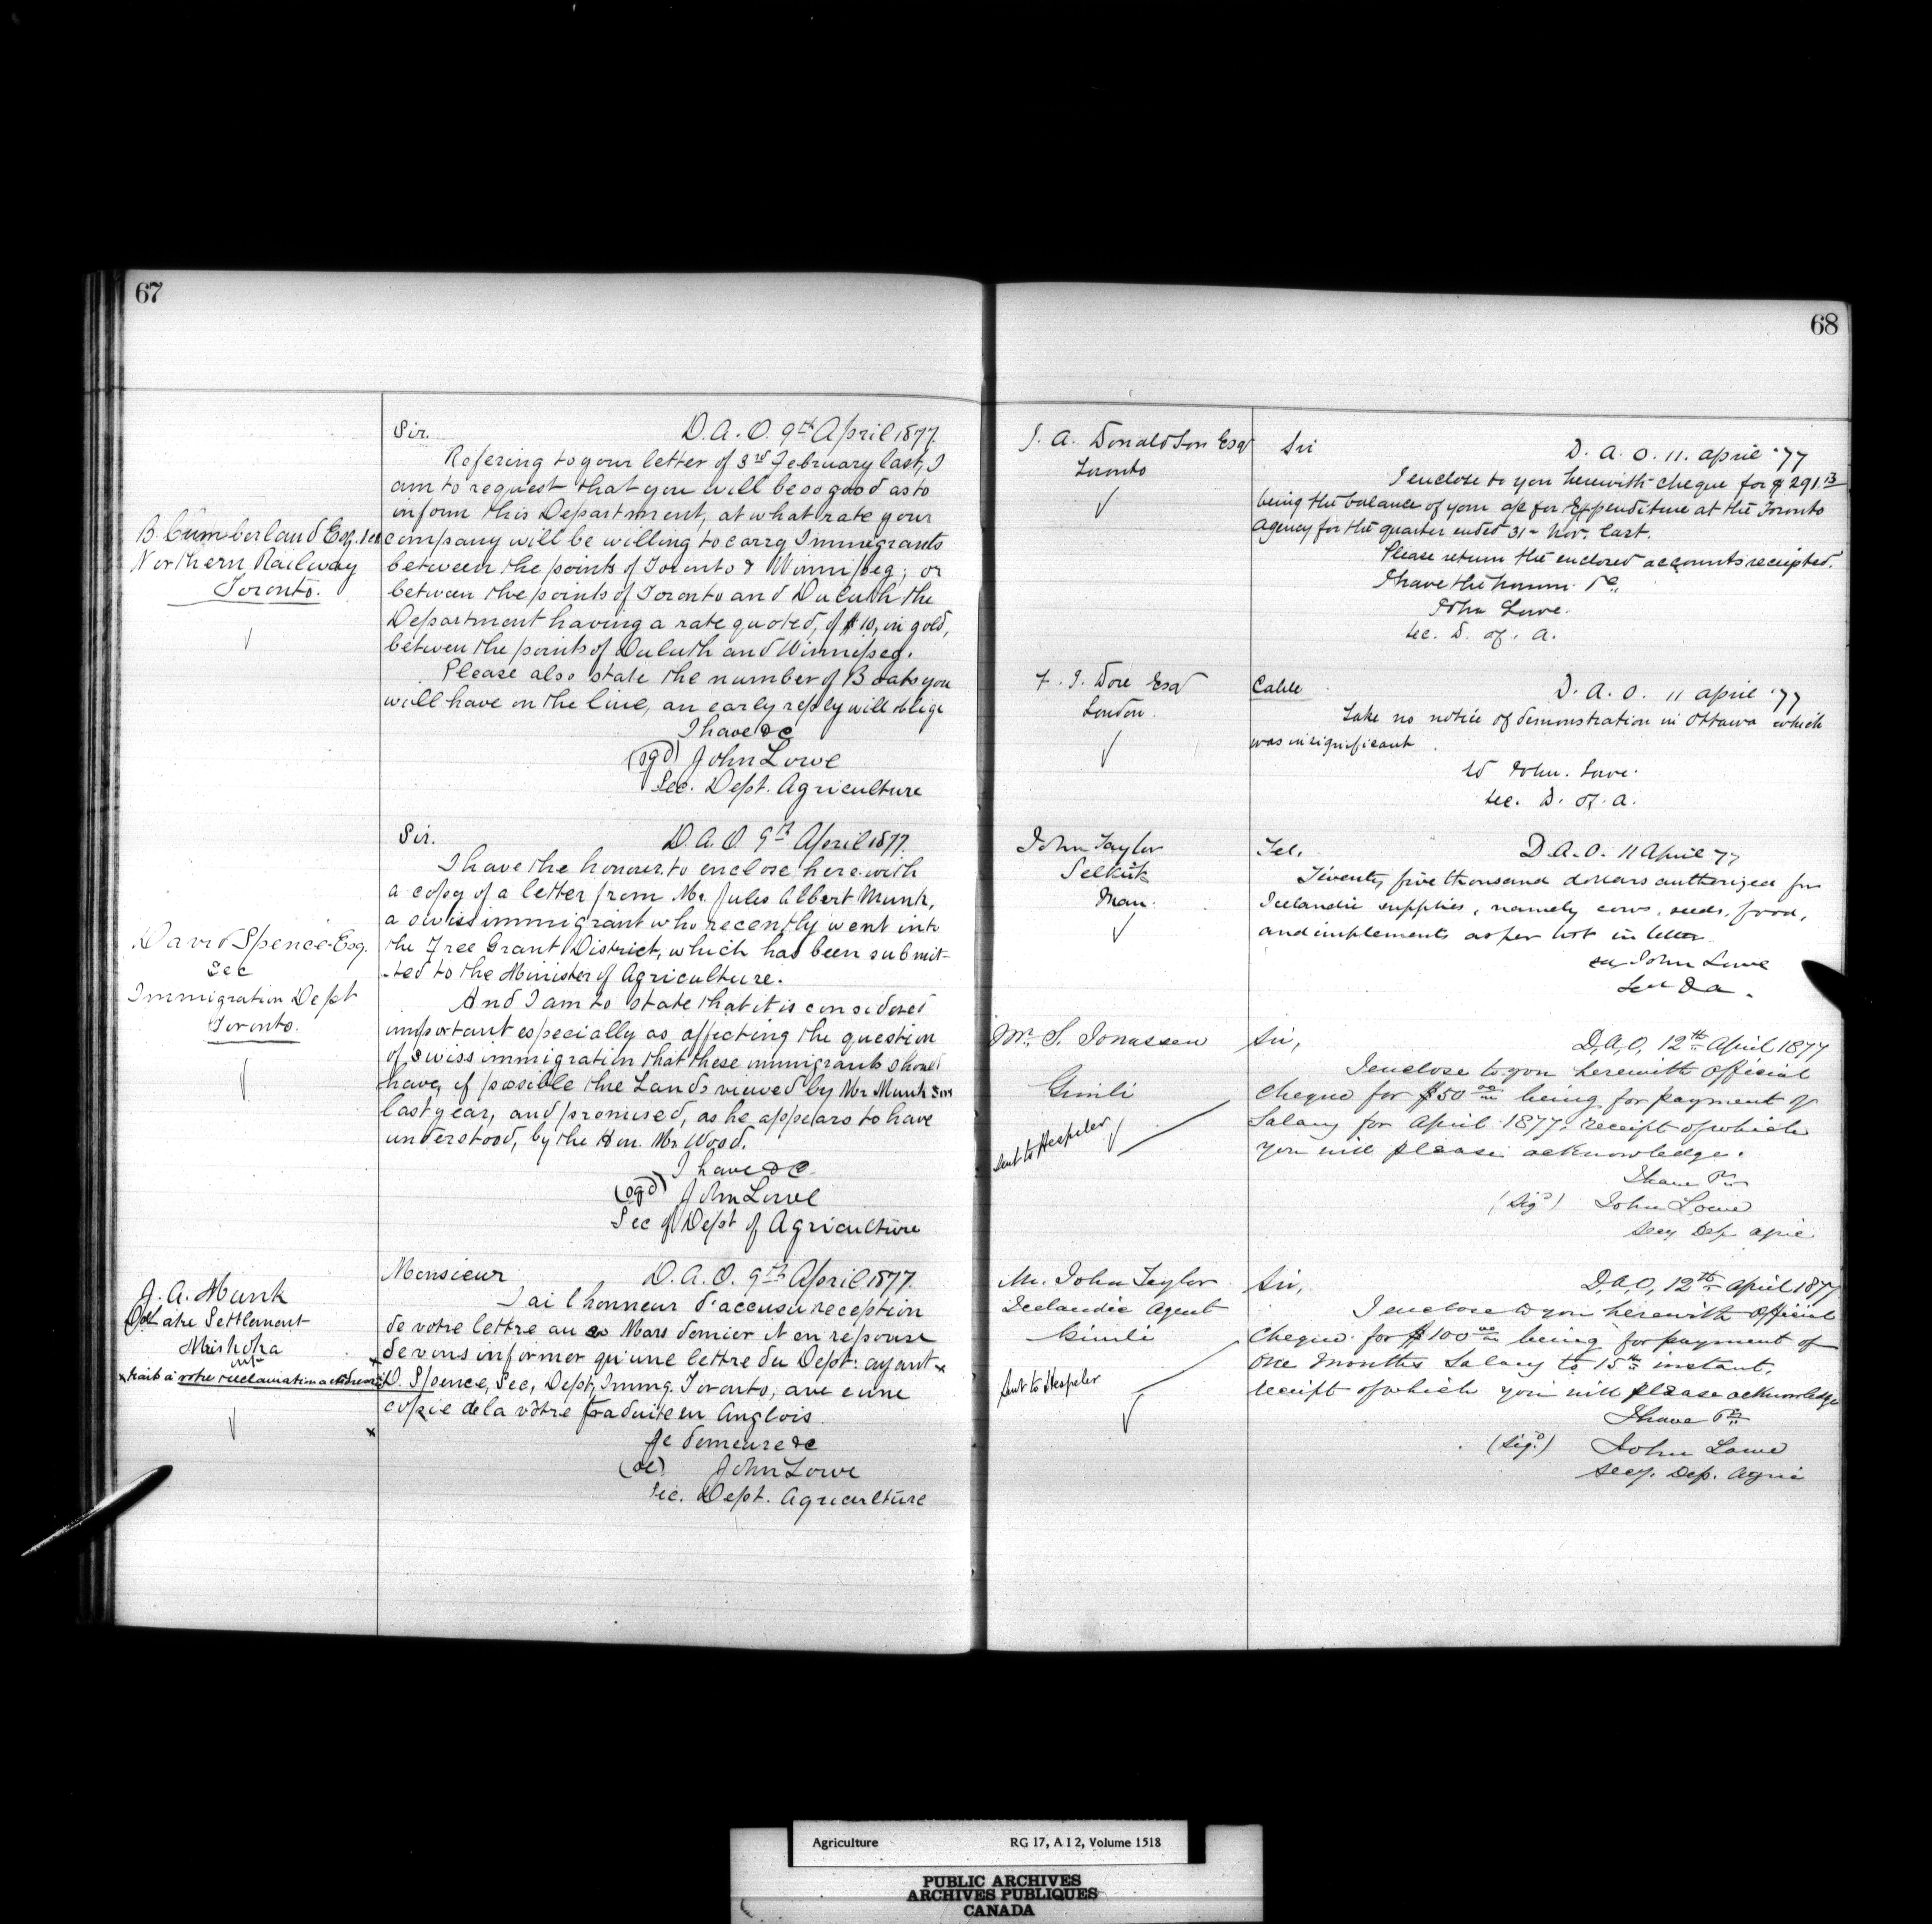 67
Sir. D. A. O. 9th April 1877.
Refering to your letter of 3rd February last, I
am to request that you will be so good as to
inform this Department, at what rate your
B. Cumberland Esq.
company will be willing to carry Immigrants
Northern Railway
between the points of Toronto & Winnipeg; or
Toronto.
between the points of Toronto and Duluth the
Department having a rate quoted, of $10, in gold,
between the points of Duluth and Winnipeg.
Please also state the number of Boats you
will have on the line, an early reply will oblige
I have &c
(sgd) John Lowe
Sec. Dept. Agriculture
Sir. D. A. O. 9th April 1877.
I have the honour to enclose here with
a copy of a letter from Mr. Jules Albert Munk,
a swiss immigrant who recently went into
David Spence Esq.
Sec
Immigration Dept
Toronto.
the Free Grant District, which has been submit-
-ted to the Minister of Agriculture.
And I am to state that it is considered
important especially as affecting the question
of swiss immigration that these immigrants should
have, if possible the Lands viewed by Mr Munk Snr
last year, and promised, as he appears to have
understood, by the Hon. Mr. Wood.
I have &c
(sgd) John Lowe
Sec of Dept of Agriculture
Monsieur D. A. O. 9th April 1877.
J. A. Munk
Lake Settlement
J'ai l'honneur d'accuser reception
de votre lettre au Mars dernier et en réponse
de vous informer qu'une lettre du Dept: ayant x
x trait à votre reclamation a été
D. Spence, Sec, Dept, Immg. Toronto, avec une
copie de la vôtre traduite en Anglois
Je demeure &c
John Lowe
Sec. Dept. Agriculture
68
J. A. Donaldson Esqr
Toronto
Sir D. A. O. 11. April '77
I enclose to you herewith cheque for $291.13
being the balance of your a/c for Expenditure at the Toronto
Agency for the quarter ended 31- Nov. last.
Please return the enclosed accounts receipted.
I have the honor &c
John Lowe.
Sec. D. of. A.
F. J. Dore Esqr
London.
Cable D. A. O. 11 April '77
Take no notice of demonstration in Ottawa which
was insignificant.
sd John. Lowe.
Sec. D. of. A.
John Taylor
Selkirk
Man.
Tel. D. A. O. 11 April 77
Twenty five thousand dollars authorized for
Icelandic supplies, namely cows, seeds, food,
and implements as per list in letter.
John Lowe
Sec D A.
Mr. S. Jonassen
Gimli
Sent to Hespeler
Sir, D, A, O, 12th April 1877
I enclose to you herewith Official
Cheque for $50 00 being for payment of
Salary for April 1877, receipt of which
you will please acknowledge.
I have &c
(Sigd) John Lowe
Secy Dep Agric
Mr. John Taylor
Icelandic Agent
Gimli
Sent to Hespeler
Sir, D, A, O, 12th April 1877
I enclose to you herewith Official
Cheque for $100 00 being for payment of
One Months Salary to 15th instant,
receipt of which you will please acknowledge
I have &c
(Sigd.) John Lowe
Secy. Dep. Agric
Agriculture RG 17, A I 2, Volume 1518
PUBLIC ARCHIVES
ARCHIVES PUBLIQUES
CANADA